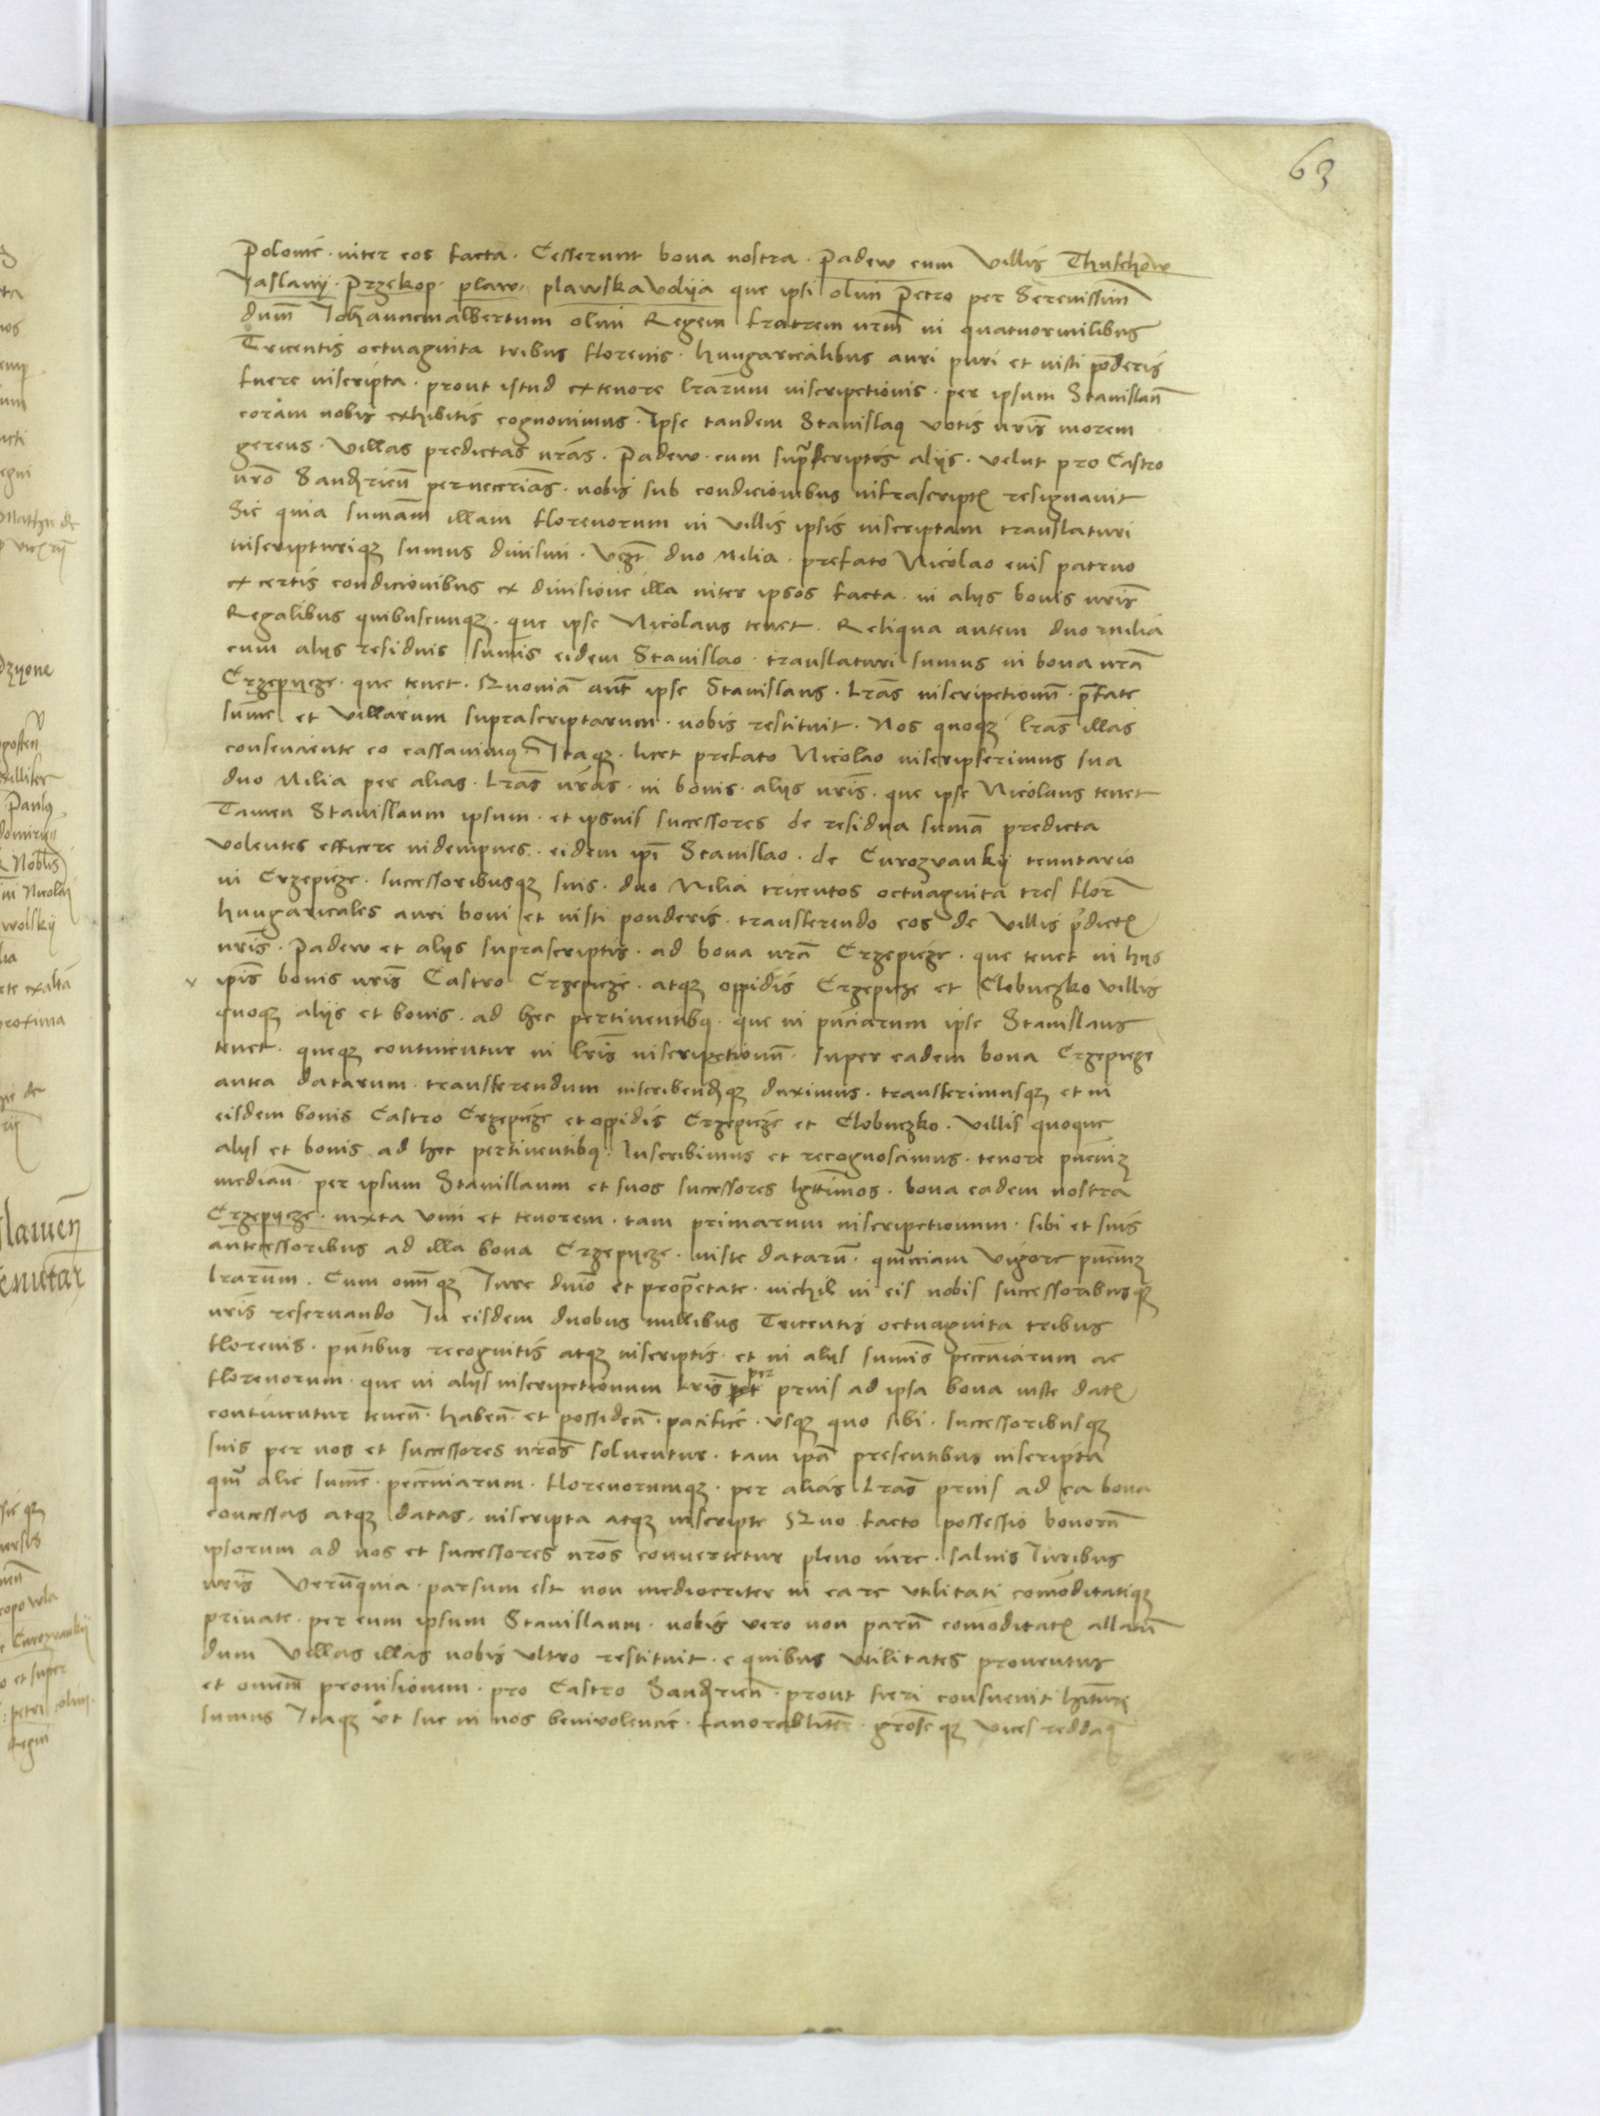 63
Polonie · inter eos facta · Cesserunt bona nostra · Padew cum Villis Thuschow
Jaslany · Przekop · plaw · plawska Volya que ipsi olim Petro per Serenissim̄
dum̄ Johannemalbertum olim Regem fratrem nrm̄ in quatuormilibus
Tricentis octuaginta tribus florenis · hungaricalibus auri puri et iusti pōderis
fuere inscripta · prout istud ex tenore lrārum inscripctionis · per ipsum Stanislaū
coram nobis exhibitis cognovimus · Ipse tandem Stanislaus votis nrīs morem
gerens · Villas predictas nrās · Padew · cum suprascriptis alijs · velut pro Castro
nrō Sandʒ̄rien̄ pernecc̄rias · nobis sub condicionibus infrascriptꝭ resignavit
Sic quia summam illam florenorum in villis ipsis inscriptam translaturi
inscripturiqꝫ sumus divisim · Vzt duo milia · prefato Nicolao eius patruo
ex certis condicionibus ex divisione illa inter ipsos facta · in alys bonis nrīs
Regalibus quibuscunqꝫ · que ipse Nicolaus tenet · Reliqua autem duo milia
cum alys residuis sumis eidem Stanislao · translaturi sumus in bona nrā
Crzepycze · que tenet · Quoniā aut̄ ipse Stanislaus · lrās inscripctionū · p̄fate
sum̄e et villarum suprascriptarum · nobis restituit · Nos quoqꝫ lrās illas
consenciente eo cassavimus Itaqꝫ · licet prefato Nicolao inscripserimus sua
duo Milia per alias · lrās nrās · in bonis · alys nrīs · que ipse Nicolaus tenet
Tamen Stanislaum ipsum · et ipsius successores de residua sumā predicta
volentes efficere indempnes · eidem ipī Stanislao · de Curozvanky tenutario
in Crzepicze · successoribusqꝫ suis · duo Milia tricentos octuaginta tres flor̄
hungaricales auri boni et iusti ponderis · transferendo eos de Villis p̄dictꝭ
nrīs · Padew et alys suprascriptis · ad bona nrā Crzepicze · que tenet in hys
ipīs bonis nrīs Castro Crzepicze · atqꝫ oppidis Crzepicze et Clobuczko villis
quoqꝫ alys et bonis · ad hec pertinentibꝰ · que in pn̄ciarum ipse Stanislaus
tenet · queqꝫ continentur in lrīs inscripctionū · super eadem bona Crzepicze
antea datarum · transferendum inscribendūqꝫ duximus · transferimusqꝫ et in
eisdem bonis Castro Crzepicze et oppidis Crzepicze et Clobuczko · Villis quoque
alys et bonis ad hec pertinentibꝰ · Inscribimus et recognoscimus · tenore pn̄ciuꝫ
median̄ · per ipsum Stanislaum et suos successores lgttimos · bona eadem nostra
Crzepycze · iuxta vim et tenorem · tam primarum inscripctionum · sibi et suis
antecessoribus ad illa bona Crzepycze · iuste datarū · quāeciam vigore pn̄ciuꝫ
lrarum̄ · Cum omn̄qꝫ Iure dnīo et prop̄etate · nichil in eis nobis successoribusqꝫ
nrīs reservando In eisdem duobus millibus Tricentis octuaginta tribus
florenis · pn̄tibus recognitis atqꝫ inscriptis · et in alys sumīs pecc̄niarum ac
florenorum · que in alys inscripctionum lrīs per prius ad ipsa bona iuste datꝭ
continentur tenen̄ · haben̄ · et possiden̄ · pacifice · usqꝫ quo sibi · successoribusqꝫ
suis per nos et successores nros̄ solventur · tam ipā presentibus inscripta
qm̄ alie sum̄e · pecc̄niarum · florenorumqꝫ · per alias lrās prius ad ea bona
concessas atqꝫ datas · inscripta atqꝫ inscripte Quo facto possessio bonorū
ipsorum ad nos et successores nros̄ convertetur pleno iure · salvis Iuribus
nrīs Verūquia · parsum est non mediocriter in ea re utilitati comoditatiqꝫ
private · per eum ipsum Stanislaum · nobis vero non parū comoditatꝭ allatū
dum Villas illas nobis ultro restituit · e quibus utilitates proventus
et omnem provisionem · pro Castro Sandʒ̄rien̄ · prout fieri consuevit
sumus Itaqꝫ ut sue in nos benivolencie · favorabiliter · · vices reddaꝰ